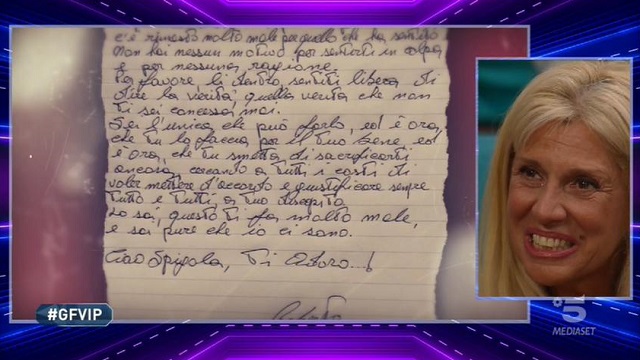 c'è rimasto molto male per quello che ha sentito
Non hai nessun motivo per sentirti in colpa
e per nessuna ragione.
Per favore lì dentro sentiti libera di
dire la verità, quella verità che non
ti sei concessa mai.
Sei l'unica che può farlo, ed è ora,
che tu lo faccia per il tuo bene, ed
è ora, che tu smetta di sacrificarti
ancora, cercando a tutti i costi di
voler mettere d'accordo e giustificare sempre
tutto e tutti, a tuo discapito.
Lo sai, questo ti fa molto male,
e sai pure che io ci sono.
Ciao Spigola, Ti Adoro...!
#GFVIP
5
MEDIASET